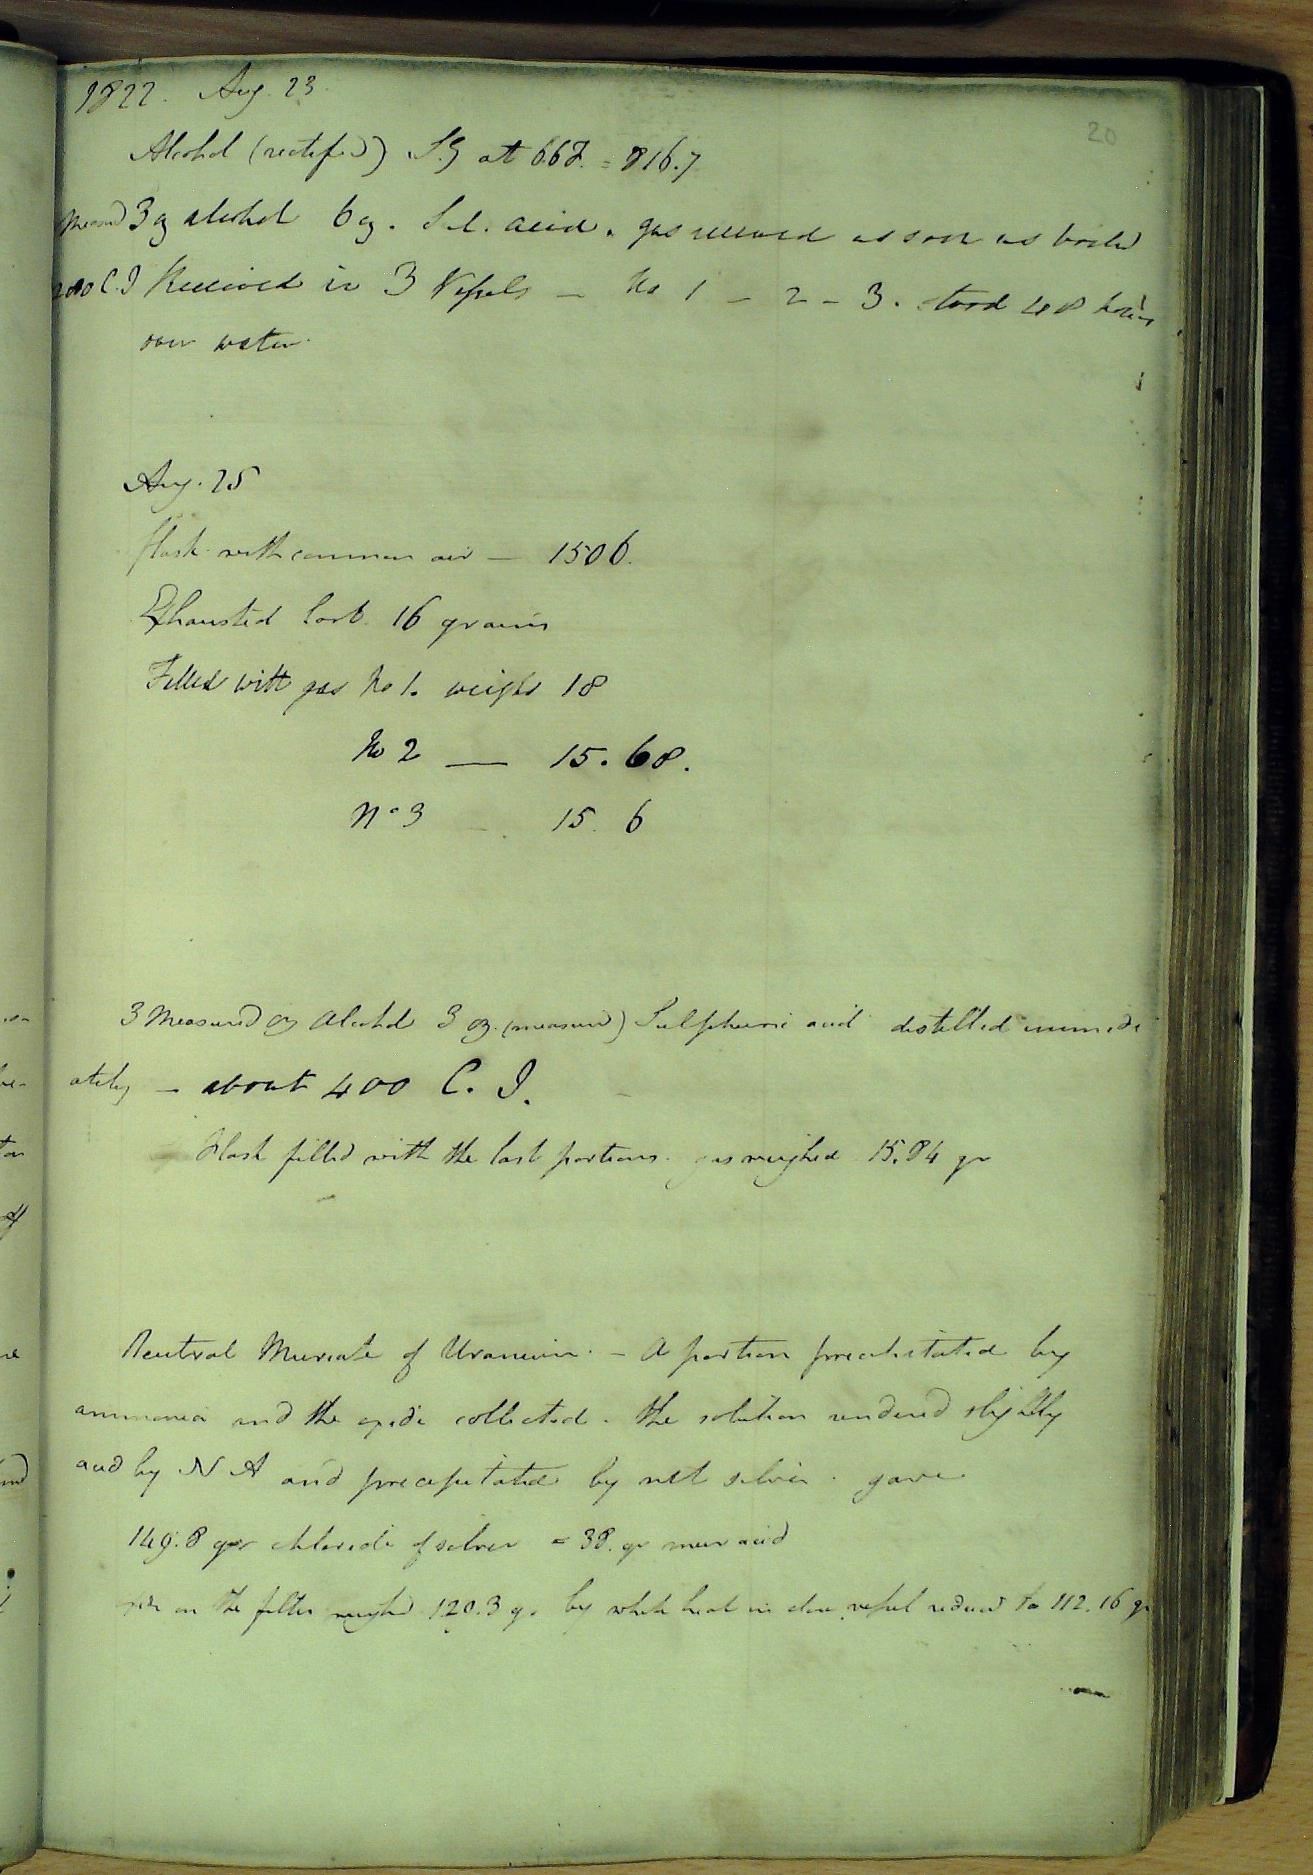 20
1822. Aug. 23.
Alcohol (rectified) S.G at 66 = 816.7
Measd 3 oz alcohol 6 oz. Sul. acid. gas received as soon as boiled
200 C.I Received in 3 Vessels — No 1 – 2 – 3. stood 48 hours
over water.
Aug. 25
flask with common air — 1506.
Exhausted lost 16 grains
Filled with gas No 1. weighs 18
No 2 — 15.68.
No 3 15.6
3 Measured oz Alcohol 3 oz. (measured) Sulphuric acid distilled immedi
ately – about 400 C. I.
Flask filled with the last portions. gas weighed 15.84 gr
Neutral Muriate of Uranium. – A portion precipitated by
ammonia and the oxide collected. the solution rendered slightly
acid by N A and precipitated by nit silver. gave
149.8 grs chloride of silver = 38. gr mur acid
on the filter weighed 120.3 g. by white heat in close vessel reduced to 112.16 gr